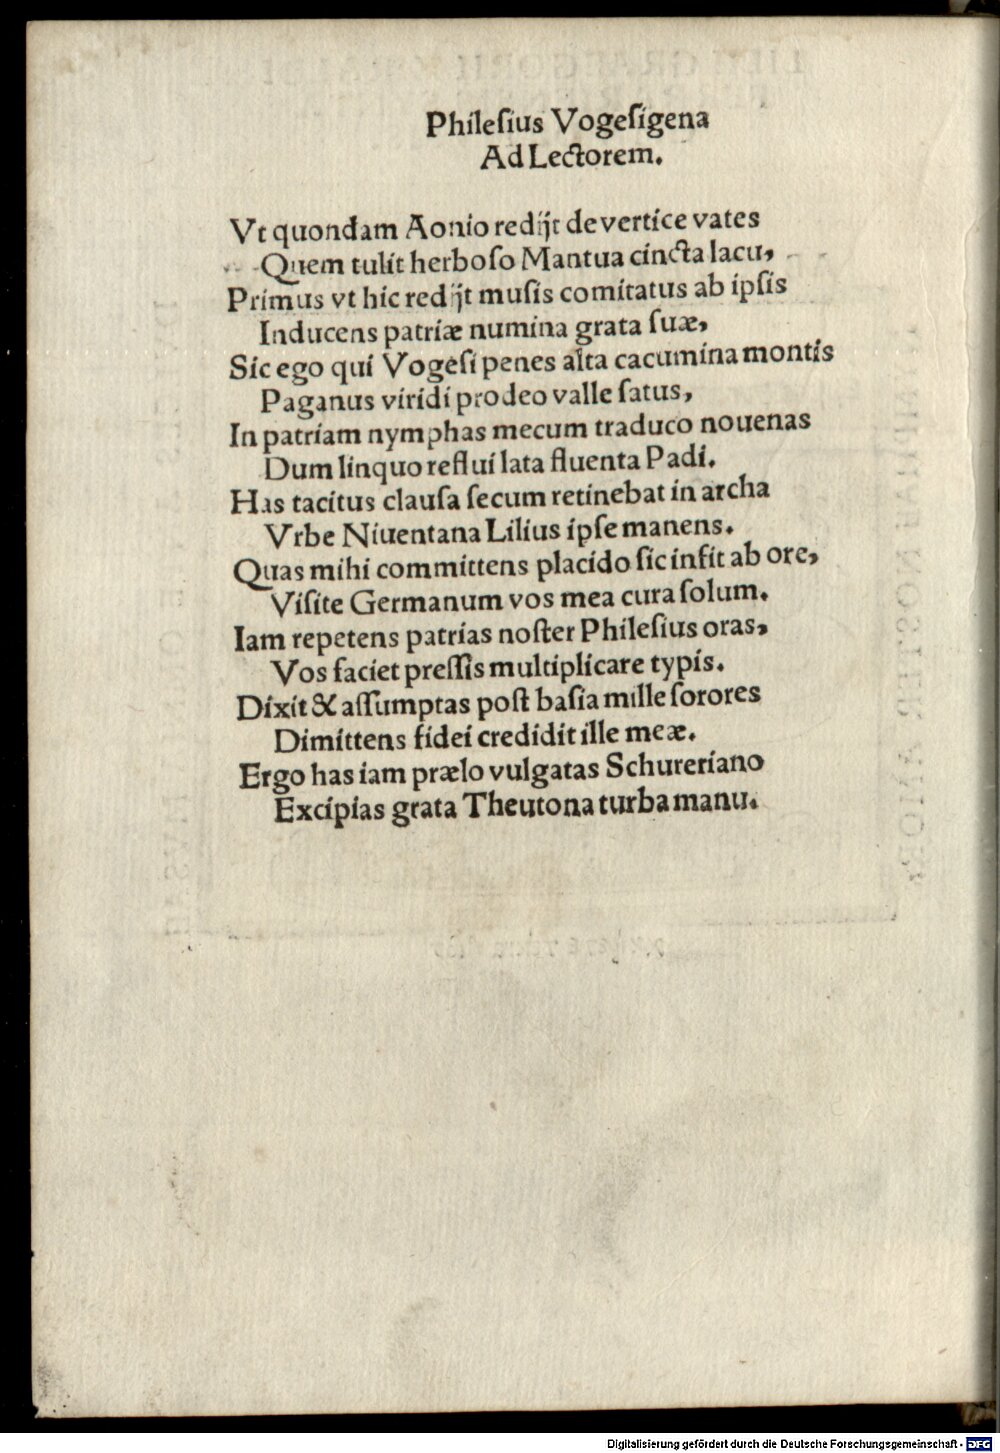 Phileſius Vogeſigena
Ad Lectorem.
Vt quondam Aonio redijt de vertice vates
Quem tulit herboſo Mantua cincta lacu,
Primus vt hic redijt muſis comitatus ab ipſis
Inducens patriæ numina grata ſuæ,
Sic ego qui Vogeſi penes alta cacumina montis
Paganus viridi prodeo valle ſatus,
In patriam nymphas mecum traduco nouenas
Dum linquo reflui lata fluenta Padi.
Has tacitus clauſa ſecum retinebat in archa
Vrbe Niuentana Lilius ipſe manens.
Quas mihi committens placido ſic infit ab ore,
Viſite Germanum vos mea cura ſolum.
Iam repetens patrias noſter Phileſius oras,
Vos faciet preſſis multiplicare typis.
Dixit & aſſumptas poſt baſia mille ſorores
Dimittens fidei credidit ille meæ.
Ergo has iam prælo vulgatas Schureriano
Excipias grata Theutona turba manu.
Digitalisierung gefördert durch die Deutsche Forschungsgemeinschaft - DFG